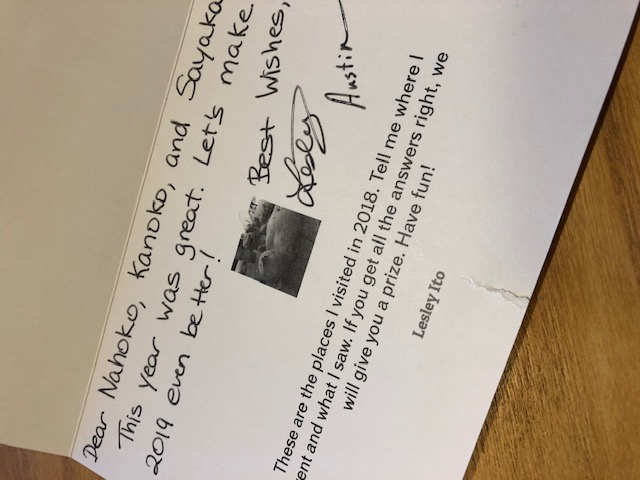 Dear Nahoko, Kanoko, and Sayaka
This year was great. Let's make
2019 even better!
Best Wishes,
Lesley
Austin
These are the places I visited in 2018. Tell me where I
ent and what I saw. If you get all the answers right, we
will give you a prize. Have fun!
Lesley Ito